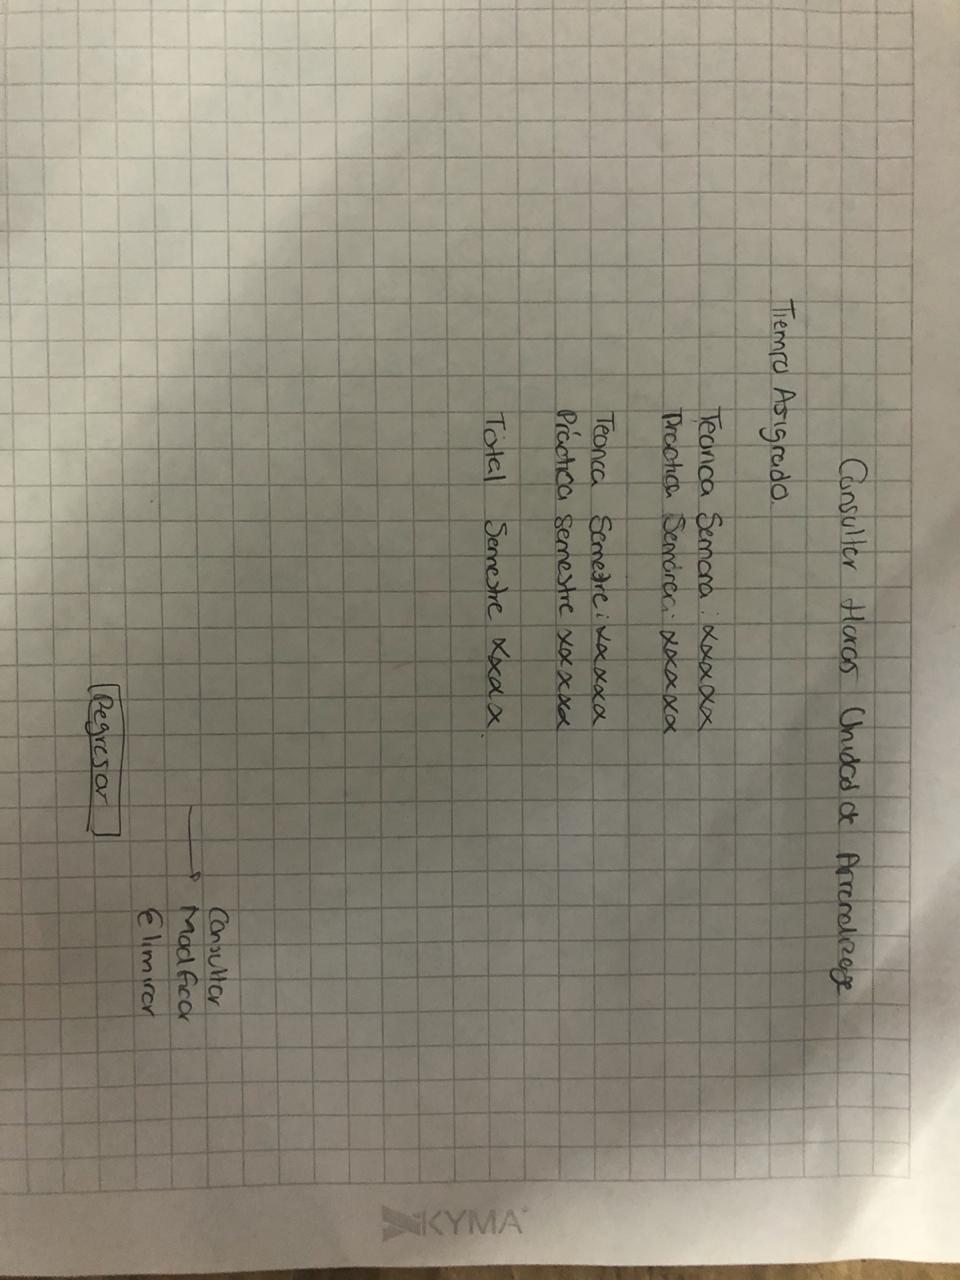 Consultar Horas Unidad de Aprendizaje
Tiempo Asignado.
Teorica Semana: xxxxx
Practica Semana: xxxxx
Teorica Semestre: xxxxx
Práctica Semestre xxxxx
Total Semestre xxxx.
Consultar
Modificar
Eliminar
Regresar
KYMA